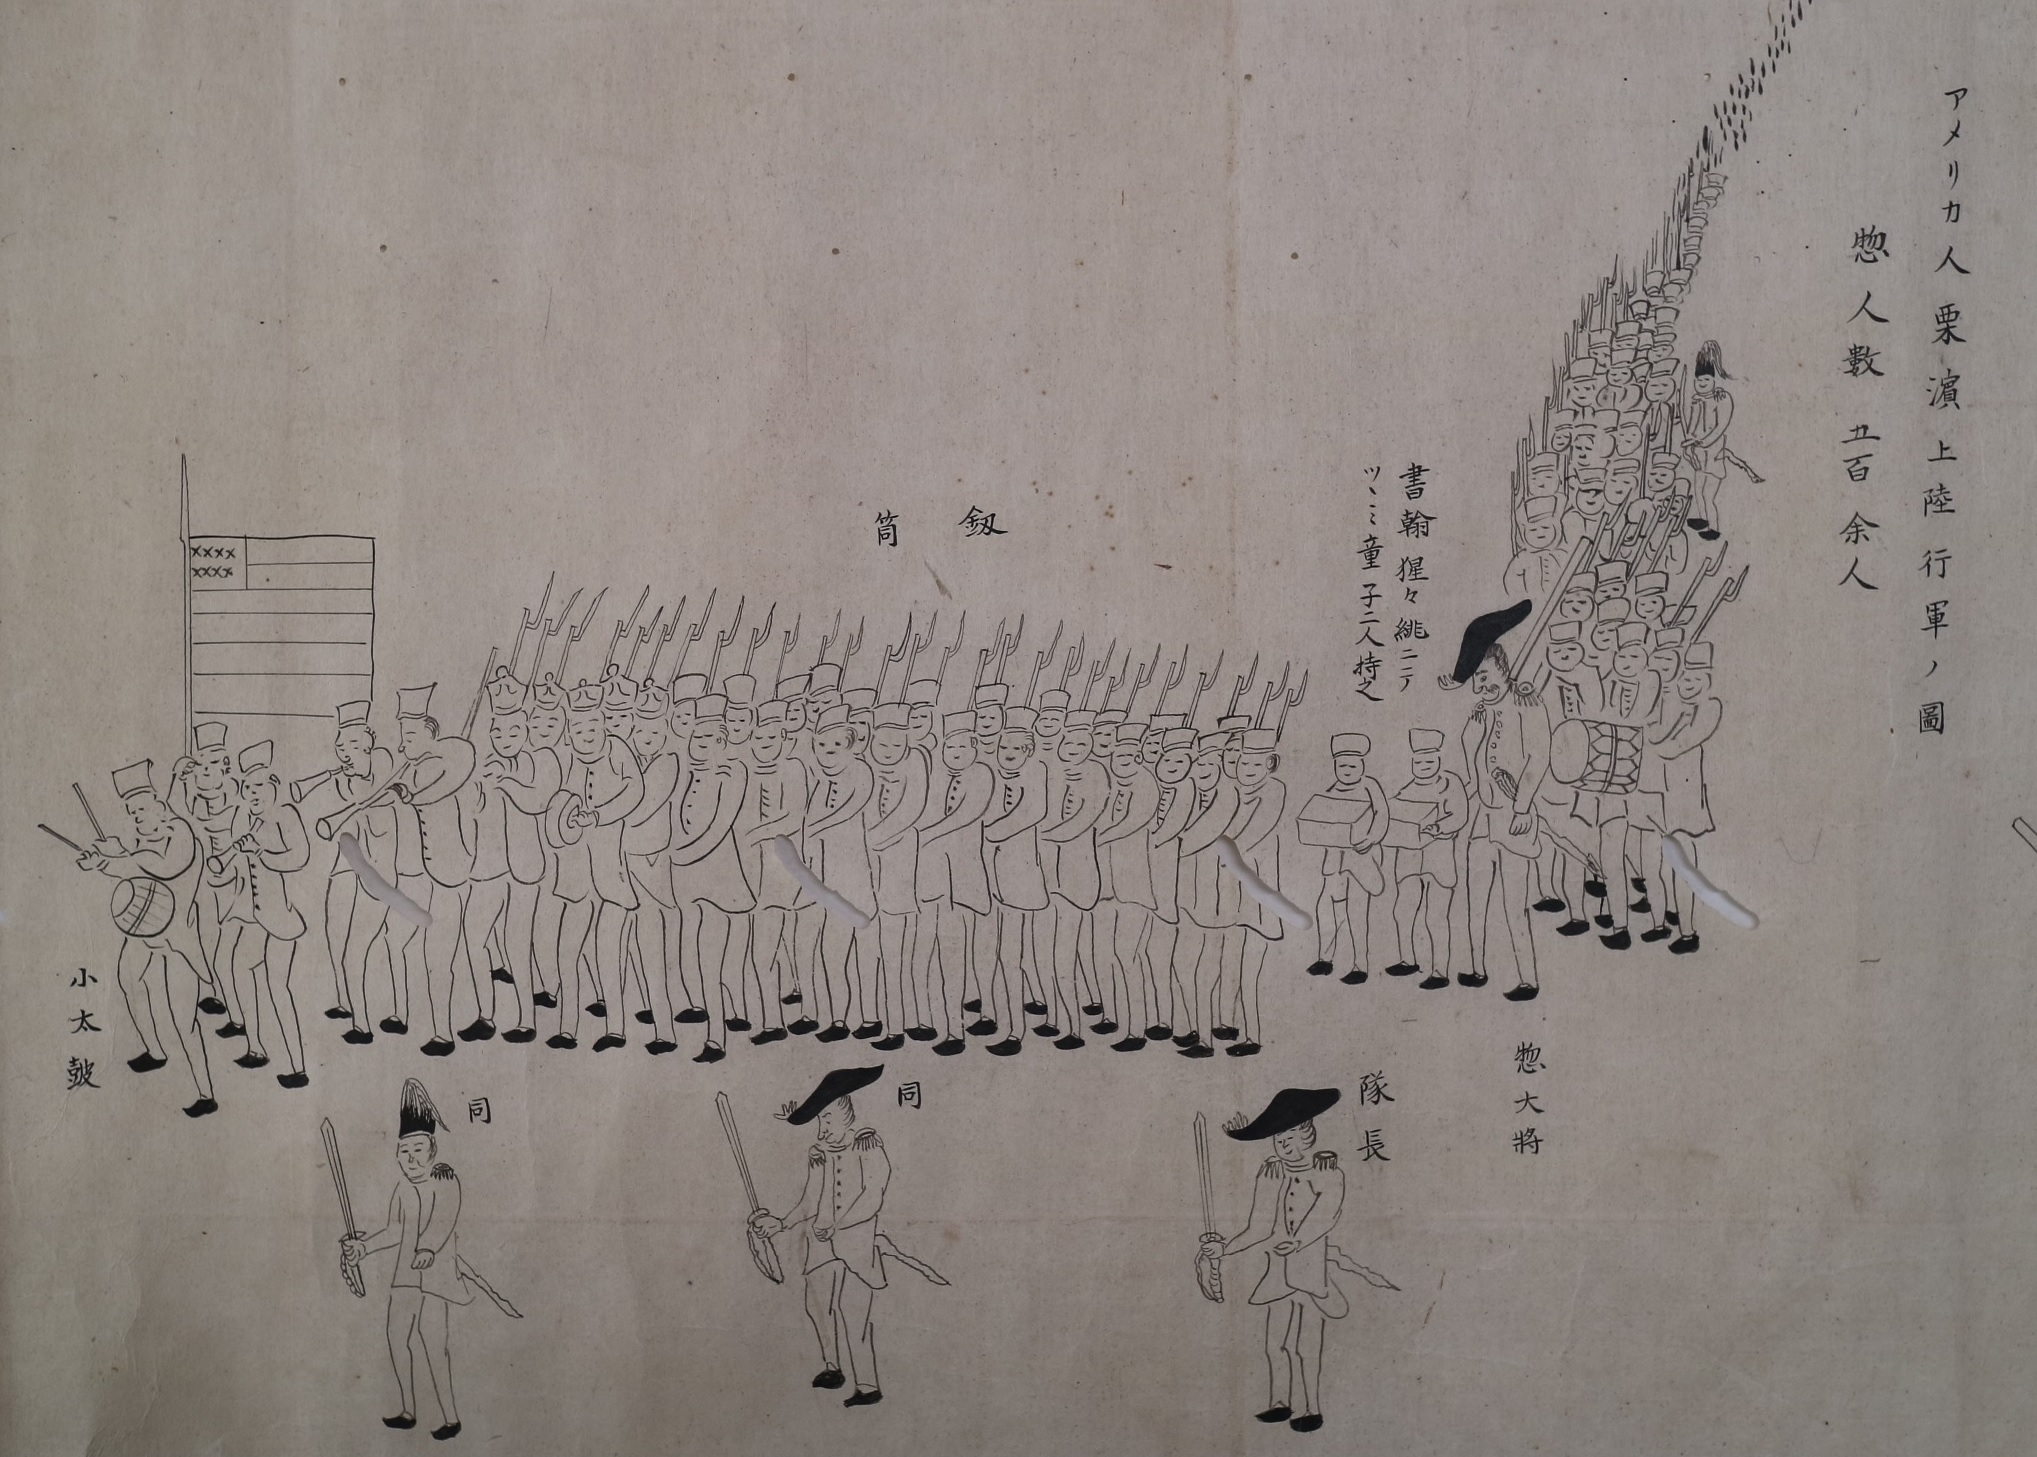 アメリカ人栗濱上陸行軍ノ圖
惣人數五百余人
書翰猩々緋ニテ
ツヽミ童子二人持之
惣大將
隊長
釼
筒
同
同
小太鼓